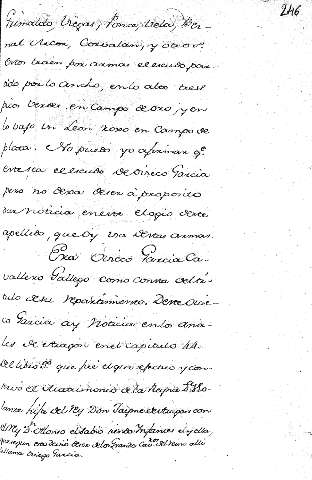 246
Grimaldo, Vegas, Ponce, Vela, Ber-
nal, Corvalan, y
Estos traen por armas el escudo par-
tido por lo ancho, en lo alto tres
pios verdes, en campo de oro, y en
lo bajo un Leon roxo en campo de
plata. No puedo yo afirmar q.e
este sea el escudo de Diego Garcia
pero no dexa de ser á proposito
dar noticia, en este elogio de este
apellido, que oy usa de estas armas.
Era Diego Garcia Ca-
vallero Gallego como consta del ti-
tulo de su repartimiento. De este Die-
go Garcia ay noticia en los Ana-
les de Aragon en el capitulo 44.
del libro que fue el que efectuó y con-
el Matrimonio de la Reyna D.a Vio-
lante hija del Rey Don Jayme de Aragon con
el Rey D.n Alonso el Sabio siendo Infante, el y ella,
por que era de los Grandes del Reyno alli
le llama Diego Garcia.